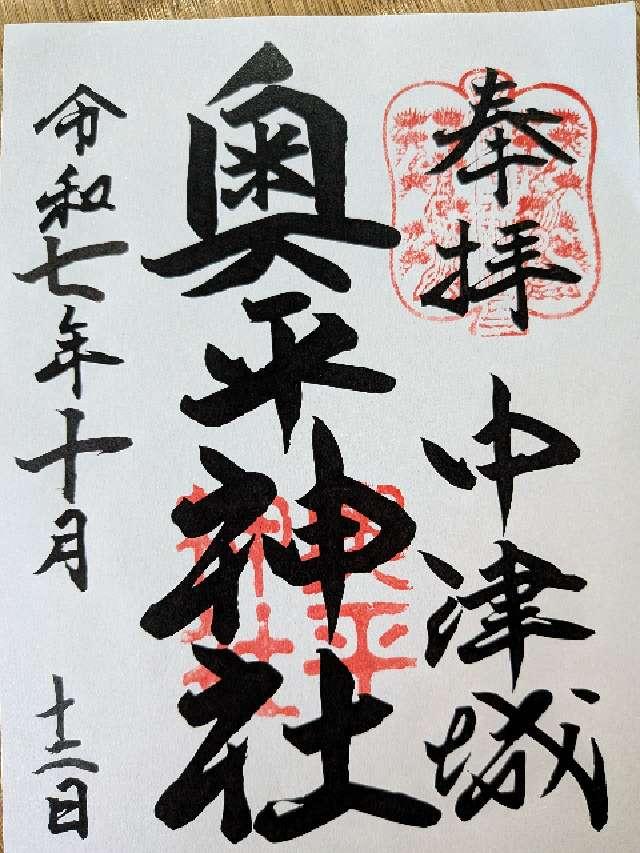 奉拝
中津城
奥平神社
奥平
神社
令和七年十月
十二日